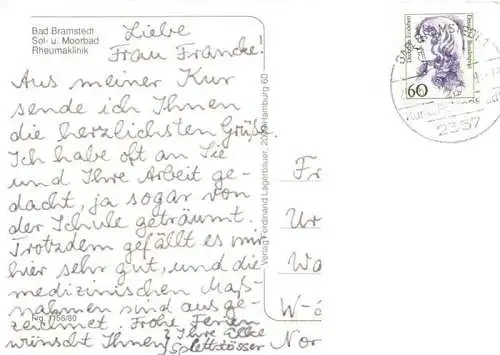 Bad Bramstedt
Sol- u. Moorbad
Rheumaklinik
Liebe
Frau Francke!
Aus meiner Kur
sende ich Ihnen
die herzlichsten Grüße.
Ich habe oft an Sie
und Ihre Arbeit ge-
dacht, ja sogar von
der Schule geträumt.
Trotzdem gefällt es mir
hier sehr gut, und die
medizinischen Maß-
nahmen sind ausge-
zeichnet. Frohe Ferien
wünscht Ihnen Ihre Elke
Splettstösser
Nr. 1156/60
Verlag Ferdinand Lagerbauer, Hamburg 60
Fr
Ur
Wa
W-
Nor
Deutsche Bundespost
60
2357